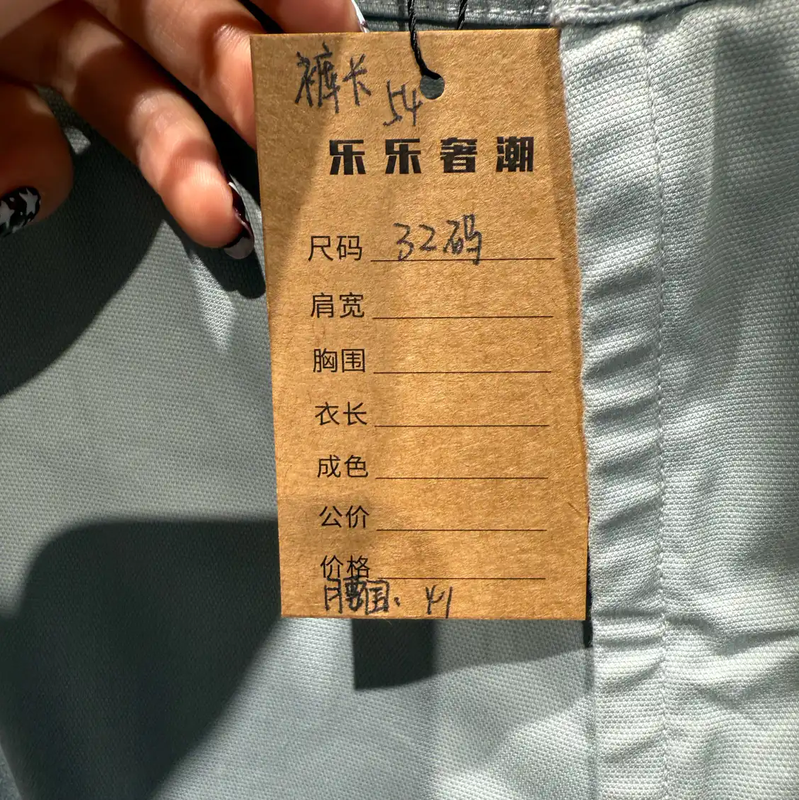 裤长 54
乐乐奢潮
尺码 32码
肩宽
胸围
衣长
成色
公价
价格
腰围: 41